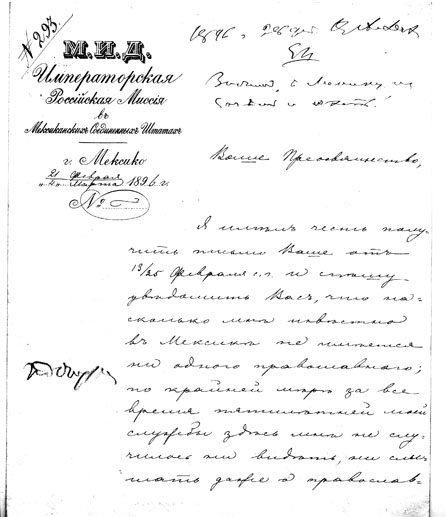 № 293.
М.И.Д.
Императорская
Россійская Миссія
въ
Мексиканскихъ Соединенныхъ Штатахъ
г. Мексико
21 Февраля
4 Марта 1896 г.
№ 5
1896
Ваше Преосвященство,
Я имѣлъ честь полу-
чить письмо Ваше отъ
13/25 Февраля с.г. и спѣшу
увѣдомить Васъ, что на-
сколько мнѣ извѣстно
въ Мексикѣ не имѣется
ни одного православнаго;
по крайней мѣрѣ за все
время пятилѣтней моей
службы здѣсь мнѣ не слу-
чилось ни видѣть, ни слы-
шать даже о православ-